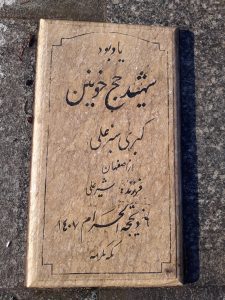 یادبود
شهید حج خونین
کبری سبزعلی
از اصفهان
فرزند: شیرعلی
۶ ذیحجه الحرام ۱۴۰۷
مکه مکرمه